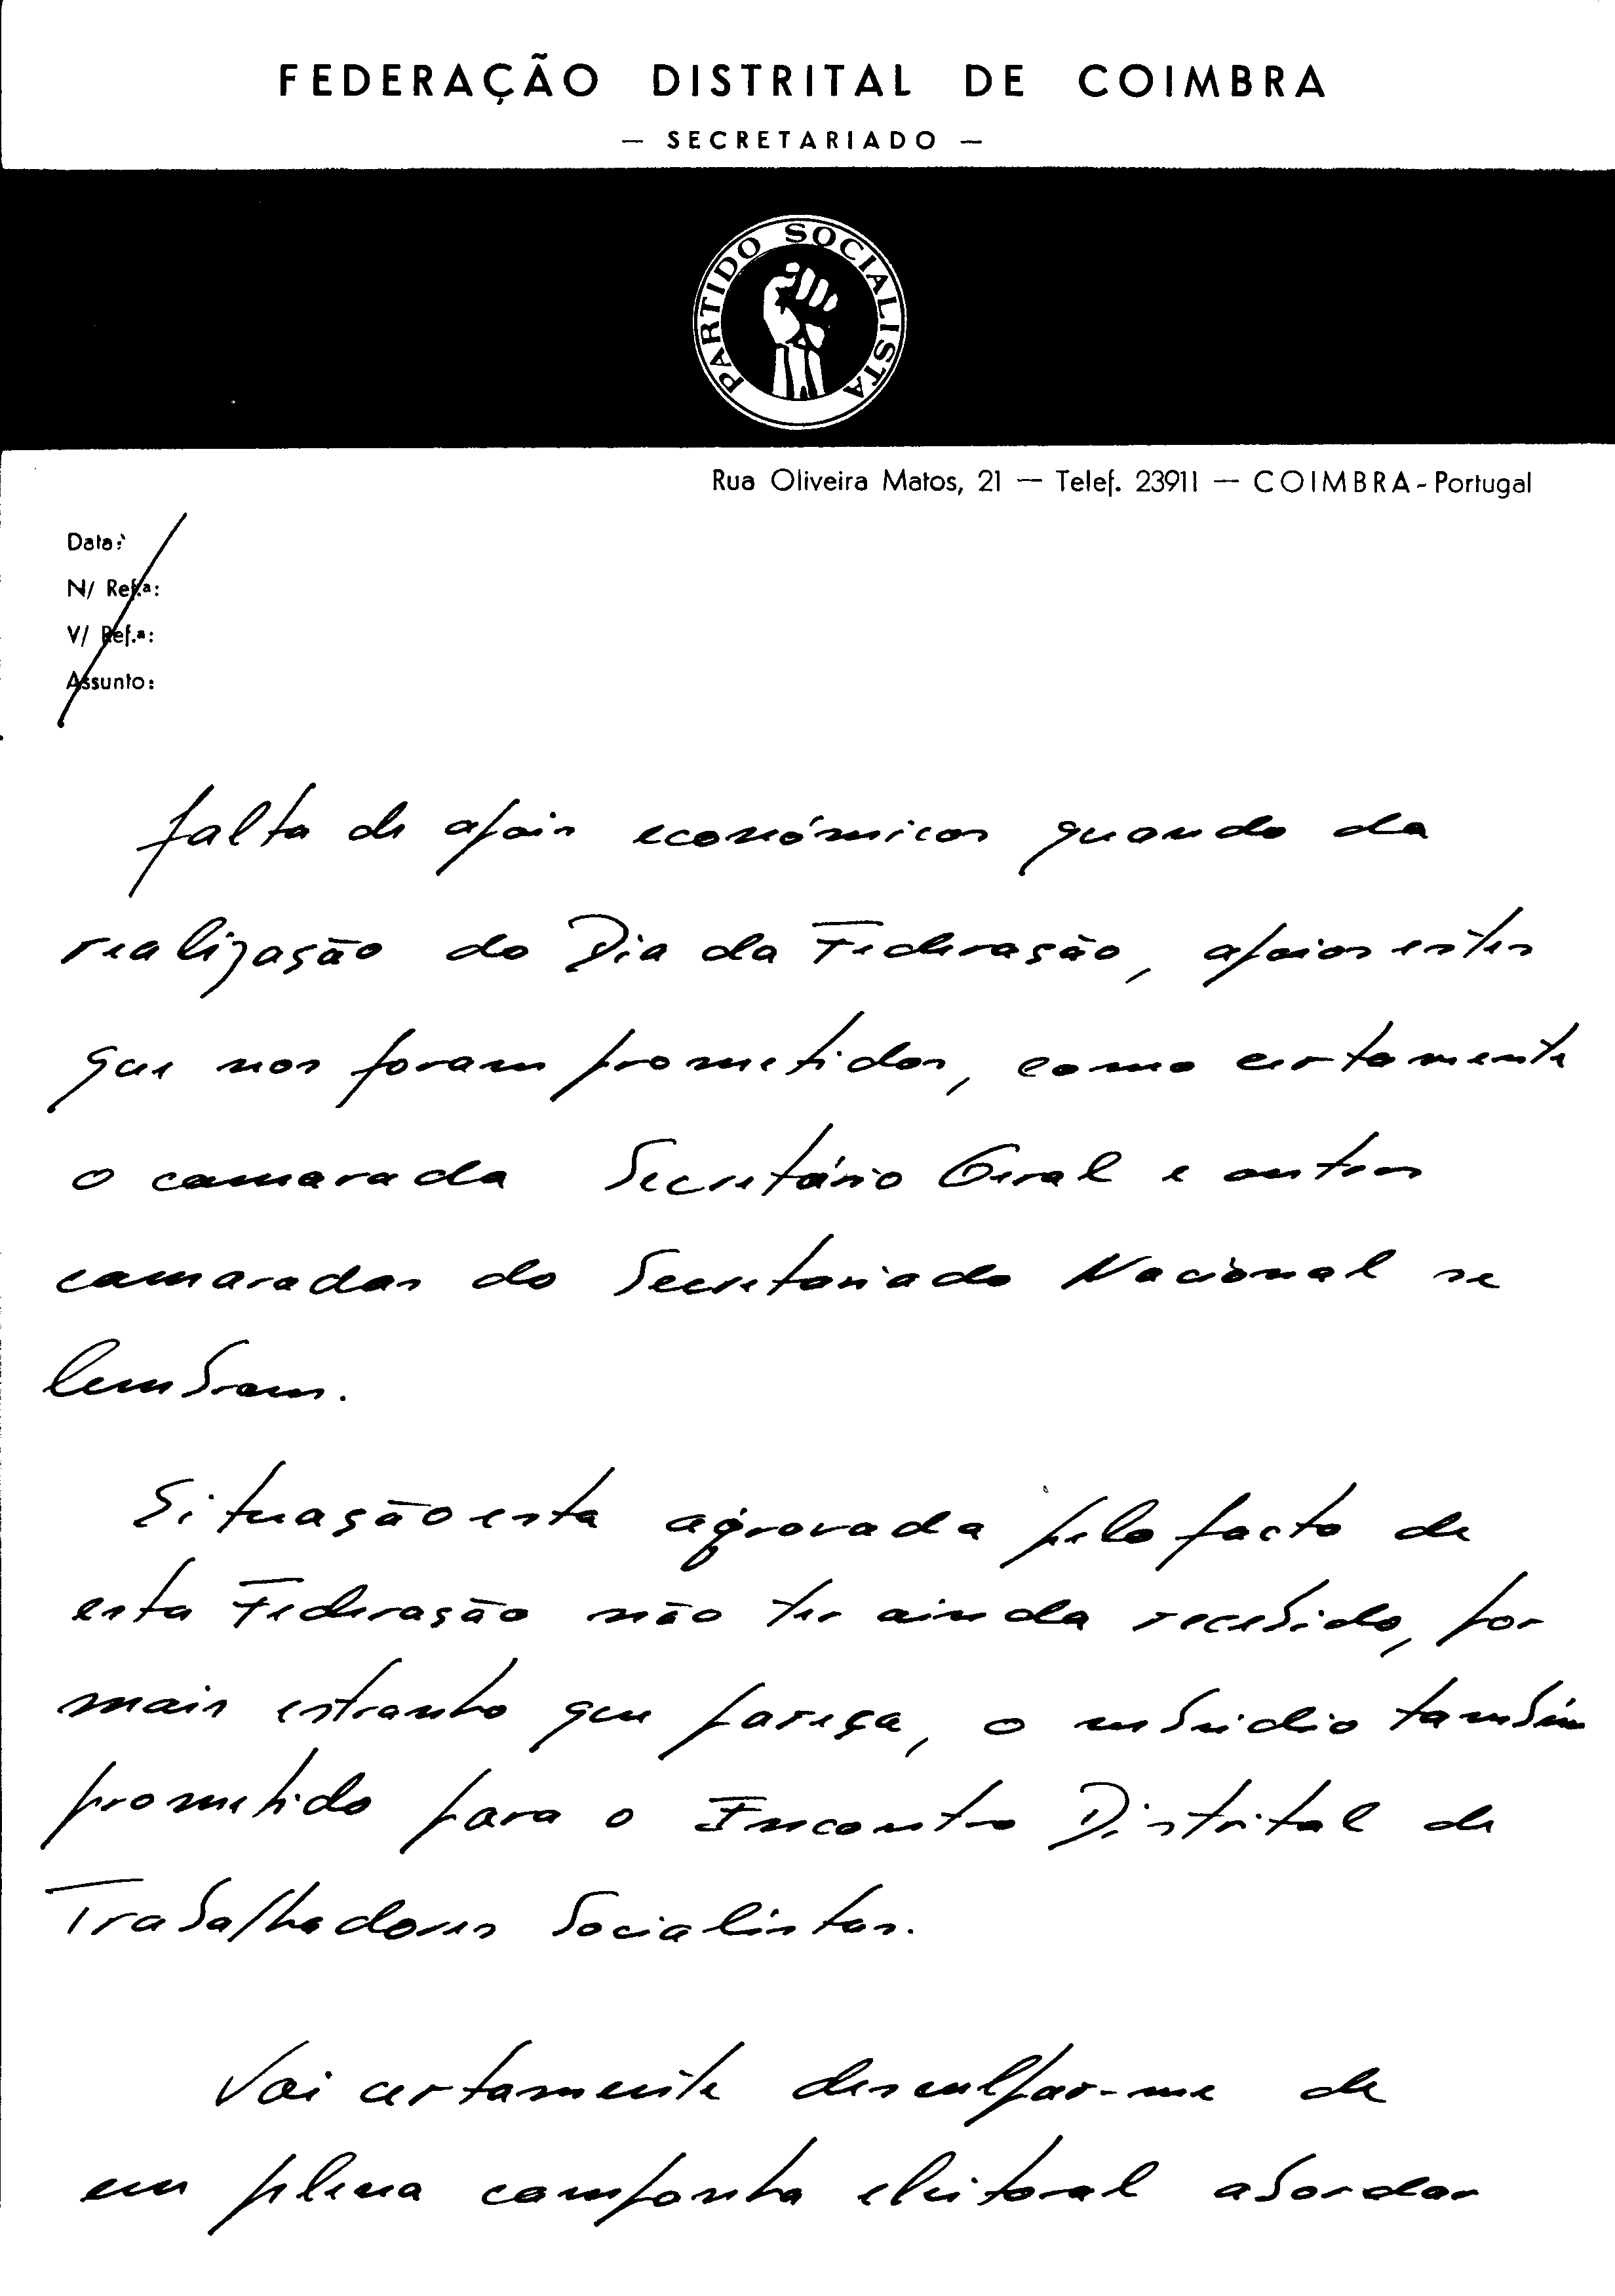 FEDERAÇÃO DISTRITAL DE COIMBRA
— SECRETARIADO —
PARTIDO SOCIALISTA
Rua Oliveira Matos, 21 — Telef. 23911 — COIMBRA - Portugal
Data:
N/ Ref.ª:
V/ Ref.ª:
Assunto:
falta de apoios económicos quando da
realização do Dia da Federação, apoios estes
que nos foram prometidos, como certamente
o camarada Secretário Geral e outros
camaradas do Secretariado Nacional se
lembram.
Situação esta agravada pelo facto de
esta Federação não ter ainda recebido, por
mais estranho que pareça, o subsidio também
prometido para o Encontro Distrital de
Trabalhadores Socialistas.
Vai certamente desculpar-me de
em plena campanha eleitoral abordar